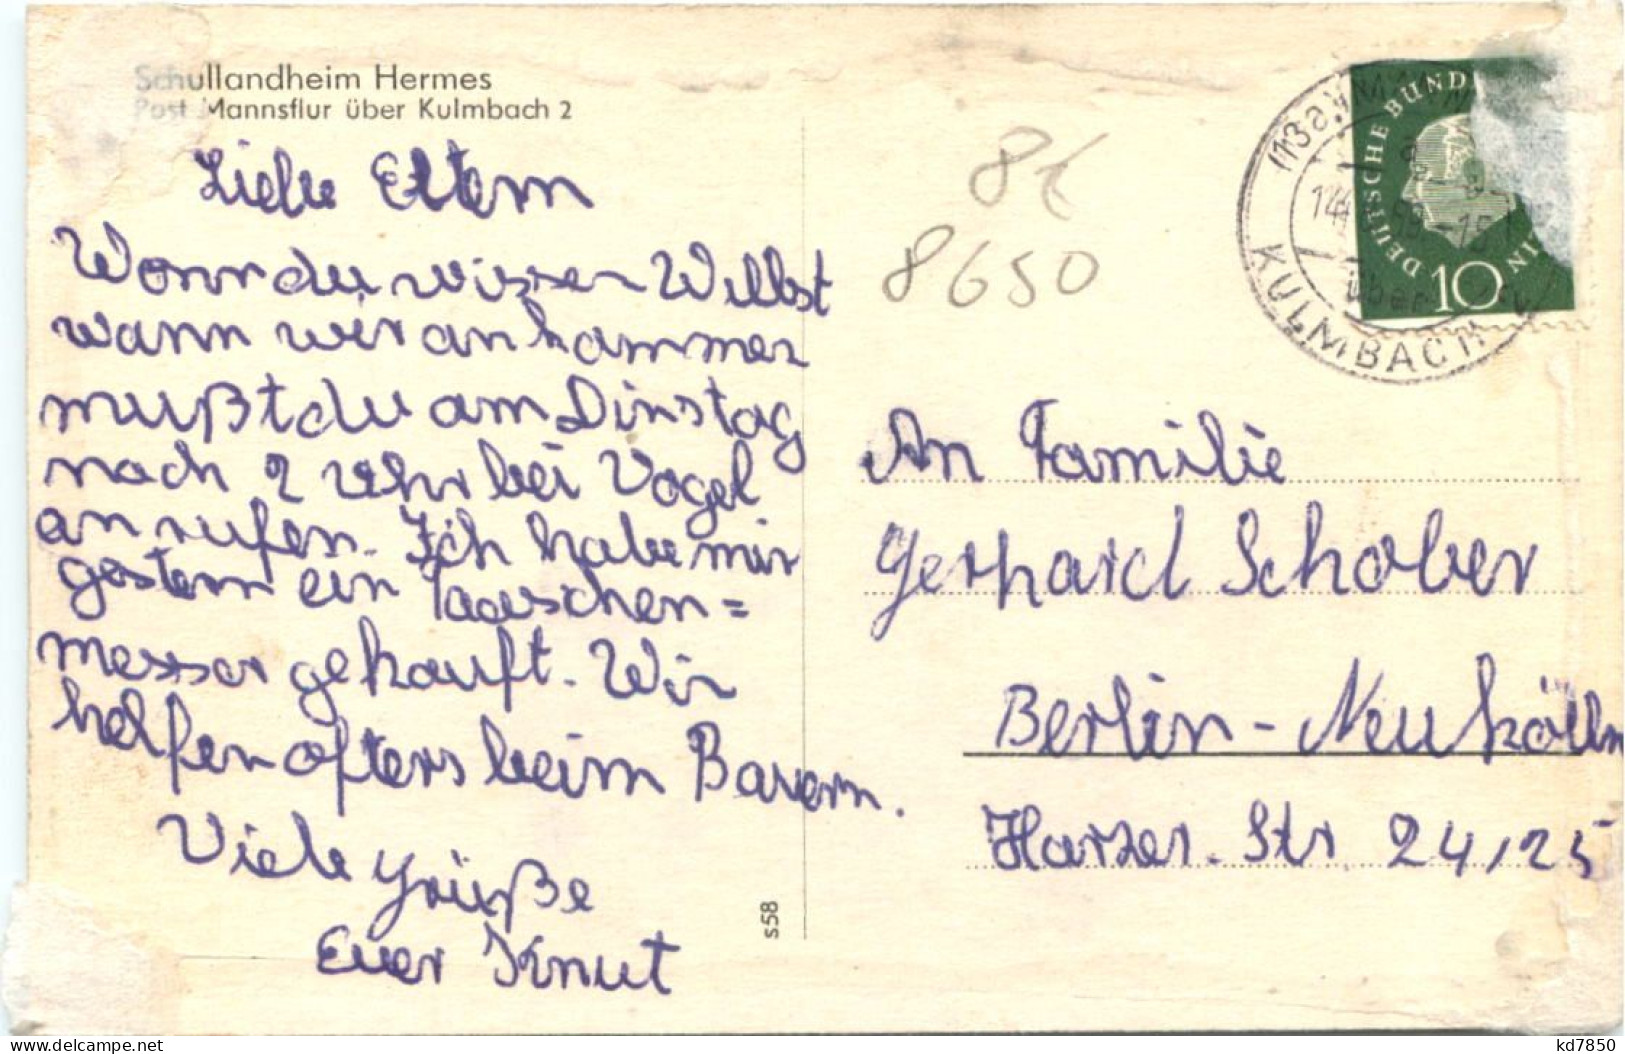 Schullandheim Hermes
Post Mannsflur über Kulmbach 2
Liebe Eltern
Wenn du wissen Willst
wann wir an kommen
mußt du am Dinstag
nach 2 Uhr bei Vogel
an rufen. Ich habe mir
gestern ein Taaschen=
messer gekauft. Wir
helfen ofters beim Bauern.
Viele Grüße
Euer Knut
s 58
8€
8650
DEUTSCHE BUND
10
KULMBACH
An Familie
Gerhard Schober
Berlin-Neukölln
Harzer. Str. 24/25
kd7850
delcampe.net